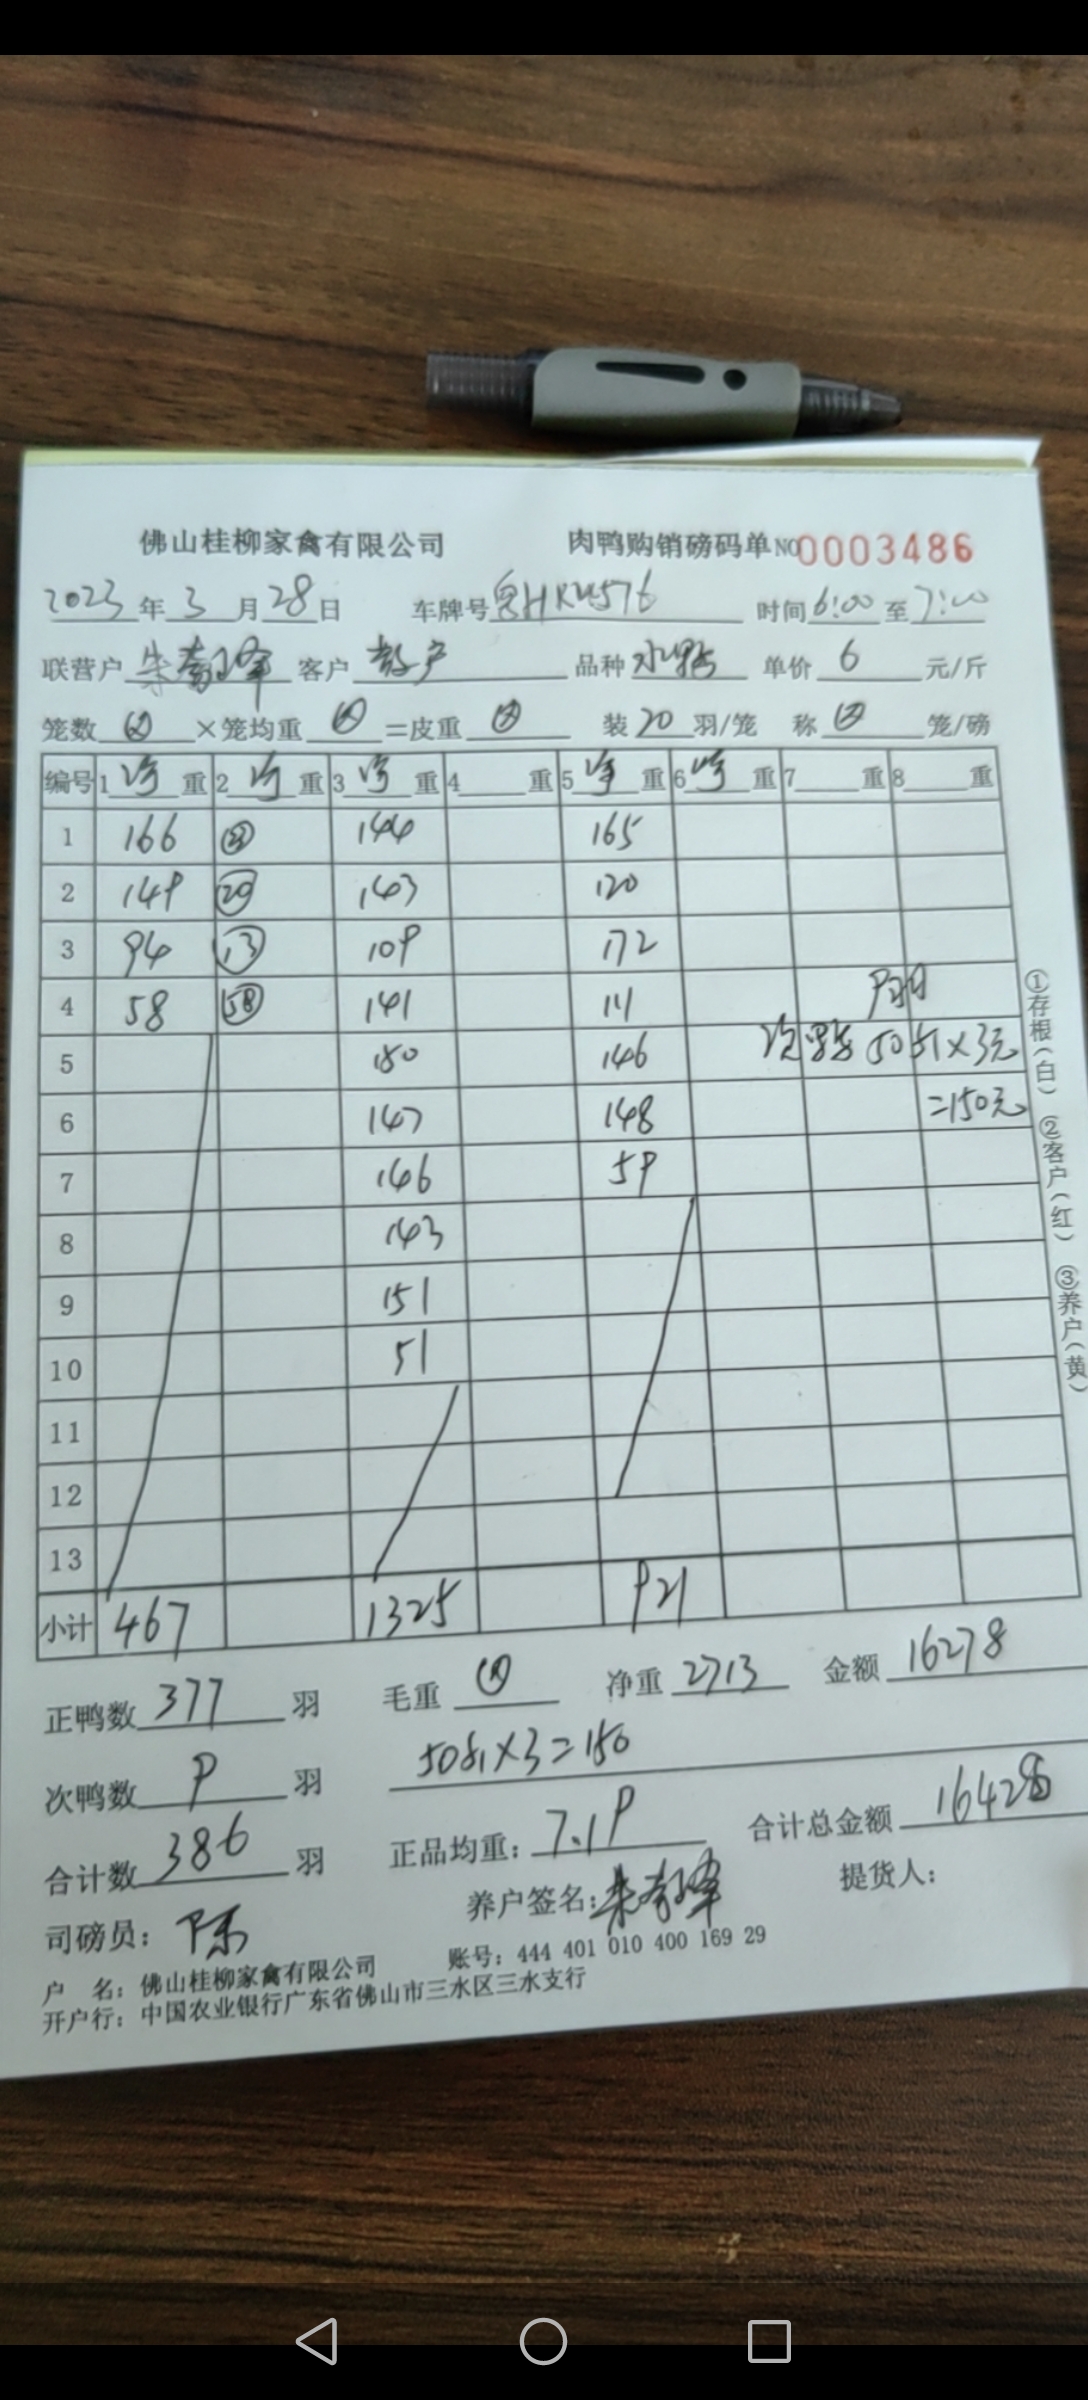 佛山桂柳家禽有限公司 肉鸭购销磅码单 NO 0003486
2023年3月28日 车牌号 HR4576 时间6:00至7:00
联营户 客户 散户 品种 水鸭 单价 6 元/斤
笼数 ×笼均重 =皮重 装 20 羽/笼 称 笼/磅
编号 1 净 重 2 净 重 3 净 重 4 重 5 净 重 6 净 重 7 重 8 重
1 166 144 165
2 149 20 143 120
3 94 13 109 172
4 58 58 141 111 9羽
5 150 146 次鸭 50斤×3元
6 147 148 =150元
7 146 59
8 143
9 151
10 51
11
12
13
小计 467 1325 921
①存根(白) ②客户(红) ③养户(黄)
正鸭数 377 羽 毛重 净重 2713 金额 16278
次鸭数 9 羽 50斤×3=150
合计数 386 羽 正品均重: 7.19 合计总金额 16428
司磅员: 陈 养户签名: 提货人:
户 名: 佛山桂柳家禽有限公司 账号: 444 401 010 400 169 29
开户行: 中国农业银行广东省佛山市三水区三水支行